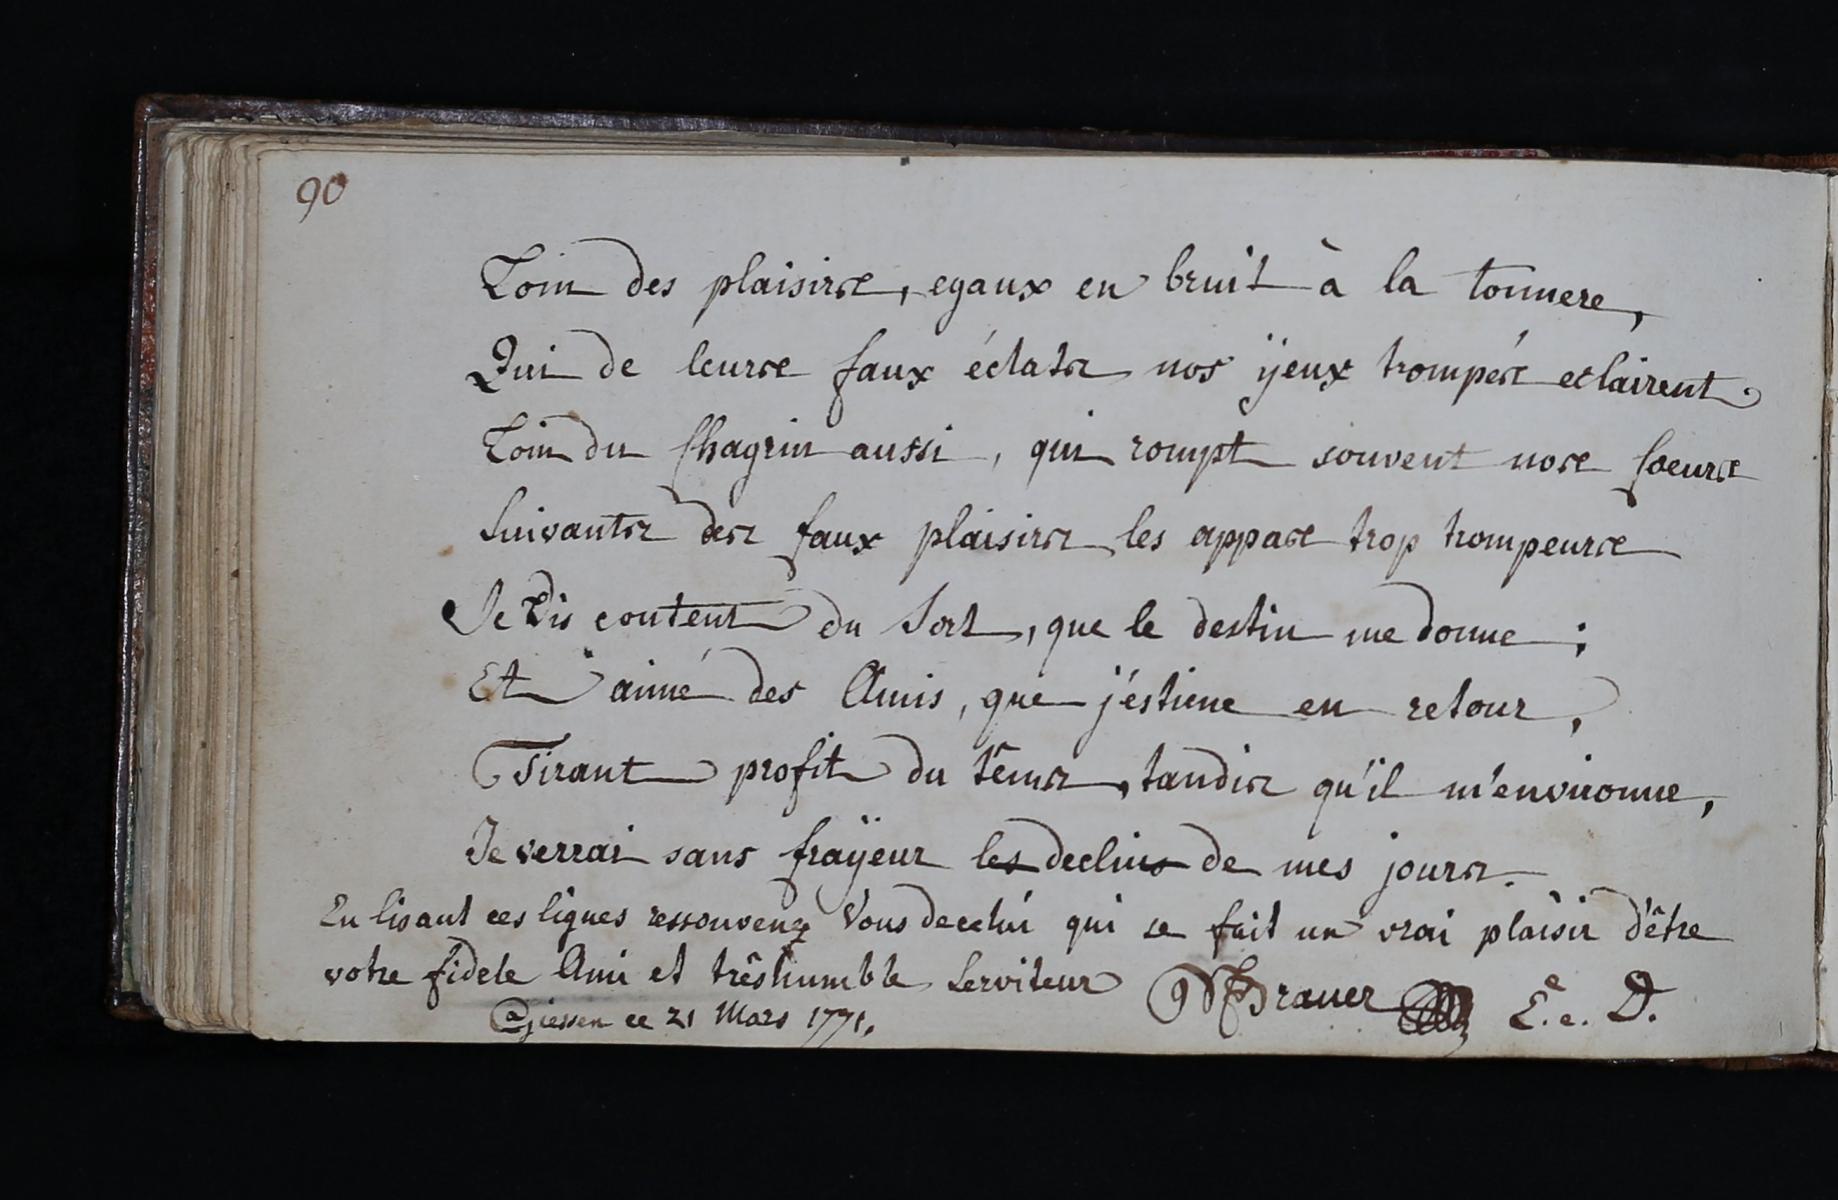 90
Loin des plaisirs, egaux en bruit à la tonnere,
Qui de leurs faux éclats nos ÿeux trompés eclairent.
Loin du Chagrin aussi, qui rompt souvent nos Coeurs
Suivants des faux plaisirs les appas trop trompeurs
Je Vis content du Sort, que le destin me donne;
Et aimé des Amis, que j'éstime en retour,
Tirant profit du têms, tandis qu'il m'environne,
Je verrai sans fraÿeur les declins de mes jours.
En lisant ces lignes ressouvenez Vous de celui qui se fait un vrai plaisir d'être
votre fidele Ami et trêshumble Serviteur Brauer E. e. D.
a giessen ce 21 Mars 1771.